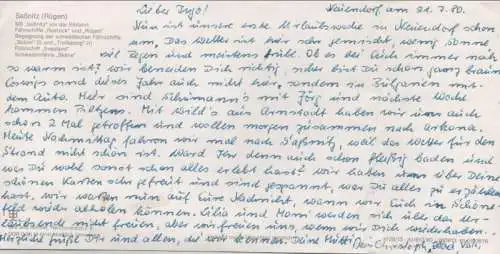 Saßnitz (Rügen)
MS "Saßnitz" vor der Einfahrt
Fährschiffe "Rostock" und "Rügen"
Begegnung der schwedischen Fährschiffe
"Skåne" (l) und "Trelleborg" (r)
Fährschiff "Svealand"
Schwedenfähre "Skåne"
Liebe Inge! Neuendorf am 21.7.80.
Nun ist unsere erste Urlaubswoche in Neuendorf schon
um. Das Wetter ist hier sehr gemischt, wenig Sonne,
viel Regen und meistens früh. Ob es bei Euch immer noch
so warm ist? wir beneiden Dich richtig, sicher bist Du schon ganz braun
Coswigs sind dieses Jahr auch nicht hier, sondern in Bulgarien mit
dem Auto. Hier sind mit Jörg und nächste Woche
kommen Mit aus Arnstadt haben wir uns auch
schon 2 Mal getroffen und wollen morgen zusammen nach Arkona.
Heute Nachmittag fahren wir mal nach Saßnitz, weil das Wetter für den
Strand nicht schön ist. Ward Ihr denn auch schon fleißig baden und
was Du wohl sonst schon alles erlebt hast? wir haben uns über Deine
schönen Karten sehr gefreut und sind gespannt, was Du alles zu erzählen
hast, wir warten nun auf Eure Nachricht, wann wir Euch in Schöne-
feld wieder abholen können. und Mani werden sich über das Ur-
laubsende nicht freuen, aber wir freuen uns, wenn wir Dich wiederhaben.
Herzliche Grüße Dir und allen, die wir kennen. Deine Mutti, Dein Christoph, und Vati,